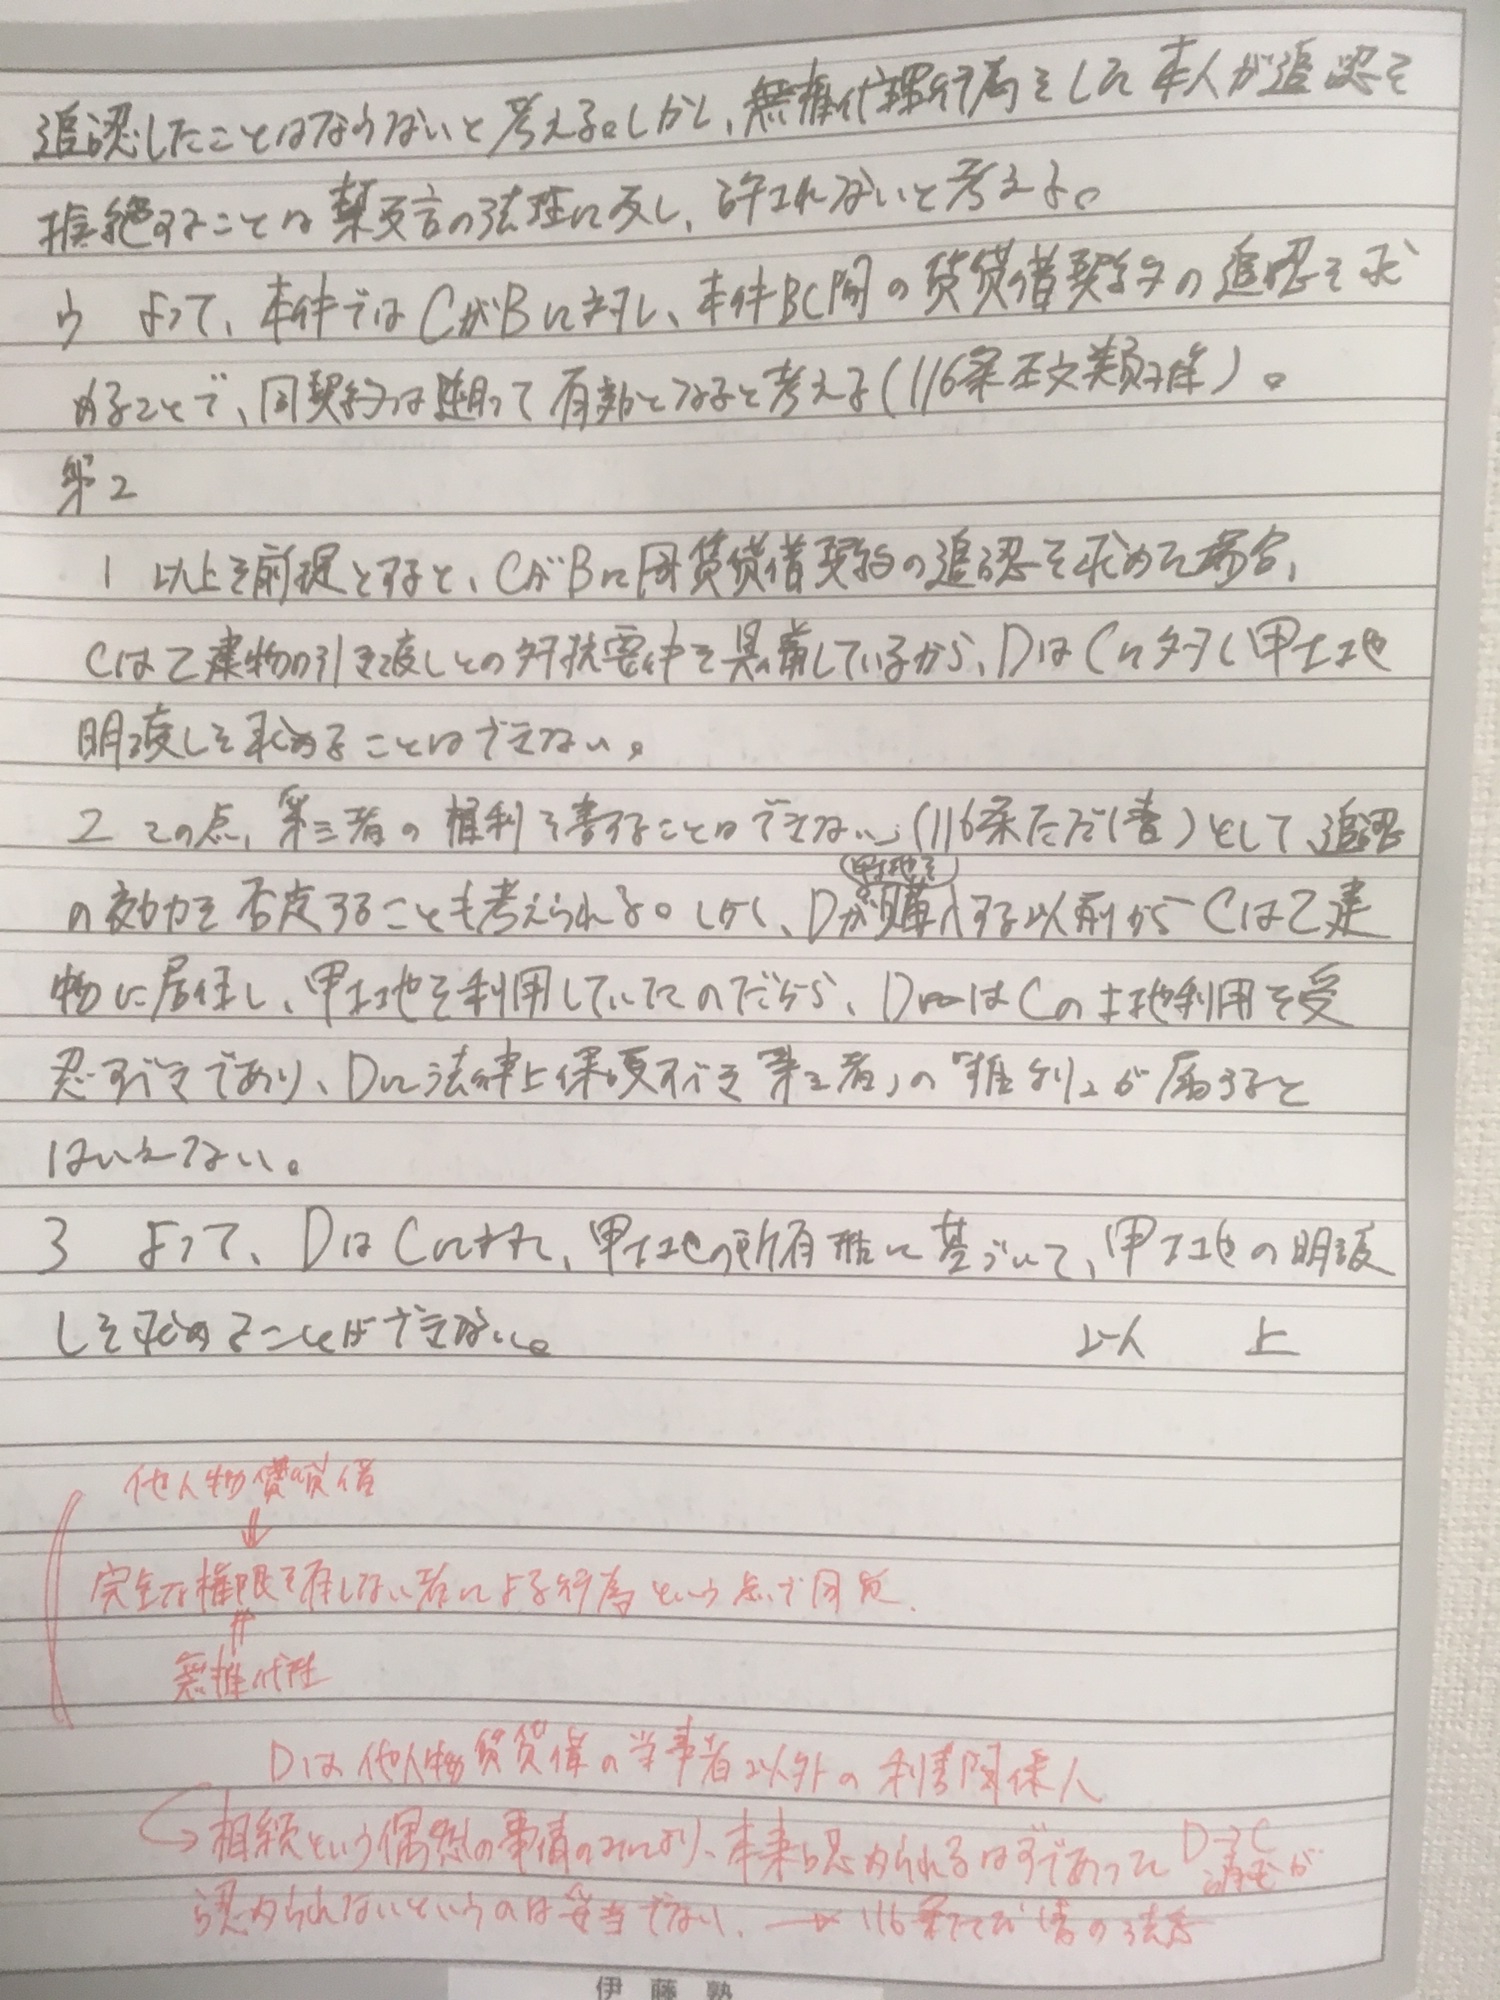 追認したことはならないと考える。しかし、無権代理行為をした本人が追認を
拒絶することは禁反言の法理に反し、許されないと考える。
ウ よって、本件ではCがBに対し、本件BC間の賃貸借契約の追認を求
めることで、同契約は遡って有効となると考える(116条本文類推)。
第2
1 以上を前提とすると、CがBに同賃貸借契約の追認を求めた場合、
Cは乙建物引き渡しとの対抗要件を具備しているから、DはCに対し甲土地
明渡しを求めることはできない。
2 この点、第三者の権利を害することはできない」(116条ただし書)として、追認
甲土地を
の効力を否定することも考えられる。しかし、Dが購入する以前からCは乙建
物に居住し、甲土地を利用していたのだから、DはCの土地利用を受
忍すべきであり、Dに法律上保護すべき「第三者」の「権利」が属すると
はいえない。
3 よって、DはCに対し、甲土地の所有権に基づいて、甲土地の明渡
しを求めることができない。 以 上
他人物賃貸借
完全な権限を有しない者による行為という点で同質.
無権代理
Dは他人物賃貸借の当事者以外の利害関係人
相続という偶然の事情のみにより、本来認められるはずであったD→C請求が
認められないというのは妥当でない. → 116条ただし書の法意
伊藤塾